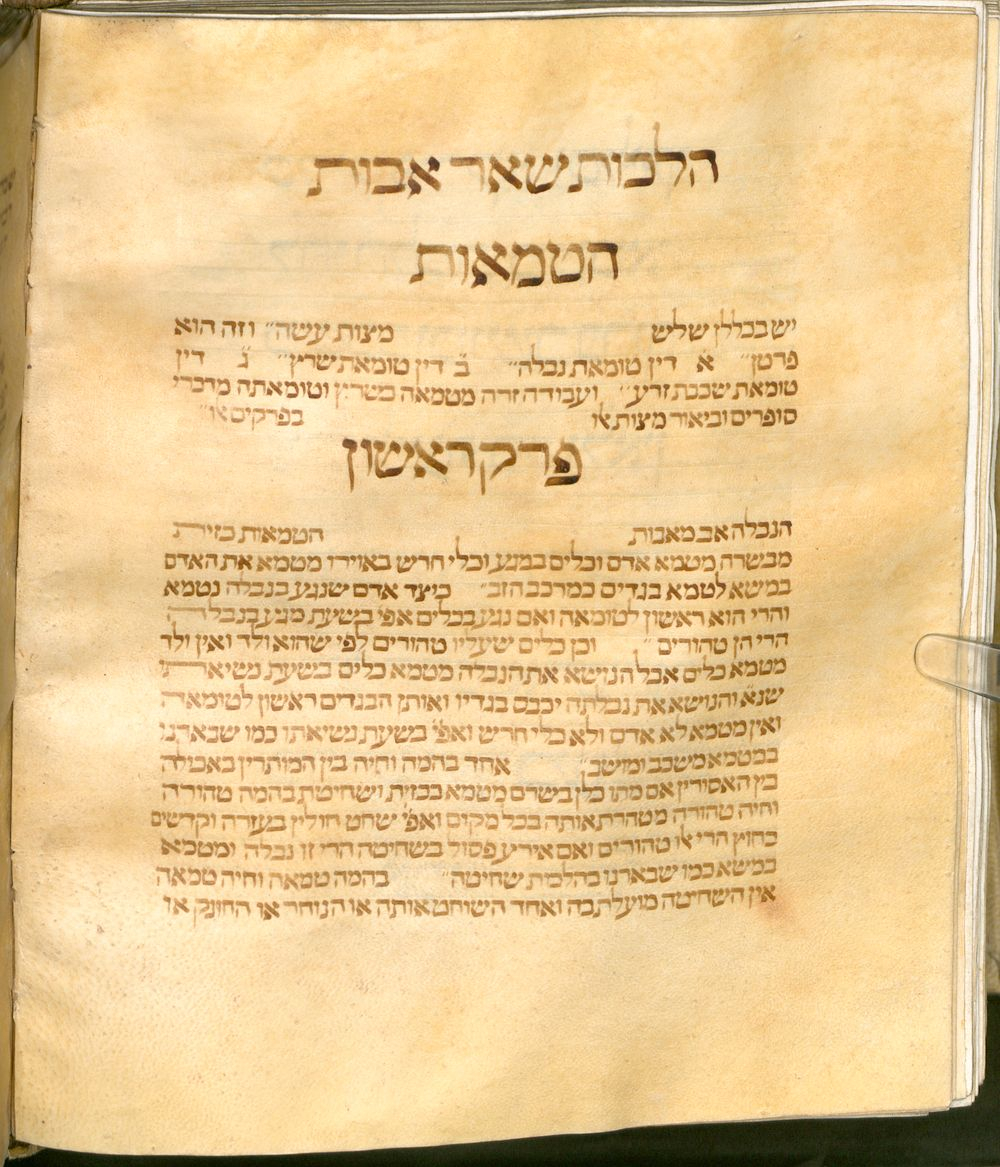 הלכות שאר אבות
הטמאות
יש בכללן שלש מצות עשה״ וזה הוא
פרטן״ א דין טומאת נבלה״ ב״ דין טומאת שרץ״ ג״ דין
טומאת שכבת זרע״ ועבודה זרה מטמאה כשרץ וטומאתה מדברי
סופרים וביאור מצות אלו בפרקים אלו״
פרק ראשון
הנבלה אב מאבות הטמאות כזית
מבשרה מטמא אדם וכלים במגע וכלי חרש באוירו ומטמא את האדם
במשא לטמא בגדים כמרכב הזב״ כיצד אדם שנגע בנבלה נטמא
והרי הוא ראשון לטומאה ואם נגע בכלים אפי׳ בשעת מגעו בנבלה
הרי הן טהורים״ וכן כלים שעליו טהורים לפי שהוא ולד ואין ולד
מטמא כלים אבל הנושא את הנבלה מטמא כלים בשעת נשיאתו
שנא׳ והנושא את נבלתה יכבס בגדיו ואותן הבגדים ראשון לטומאה
ואין מטמא לא אדם ולא כלי חרש ואפי׳ בשעת נשיאתו כמו שבארנו
במטמא משכב ומושב״ אחד בהמה וחיה בין המותרין באכילה
בין האסורין אם מתו כלן בשרם מטמא בכזית ושחיטת בהמה טהורה
וחיה טהורה מטהרת אותה בכל מקום ואפי׳ שחט חולין בעזרה וקדשים
בחוץ הרי אלו טהורים ואם אירע פסול בשחיטה הרי זו נבלה ומטמא
במשא כמו שבארנו בהלכות שחיטה״ בהמה טמאה וחיה טמאה
אין השחיטה מועלת בה ואחד השוחט אותה או הנוחר או החונק או